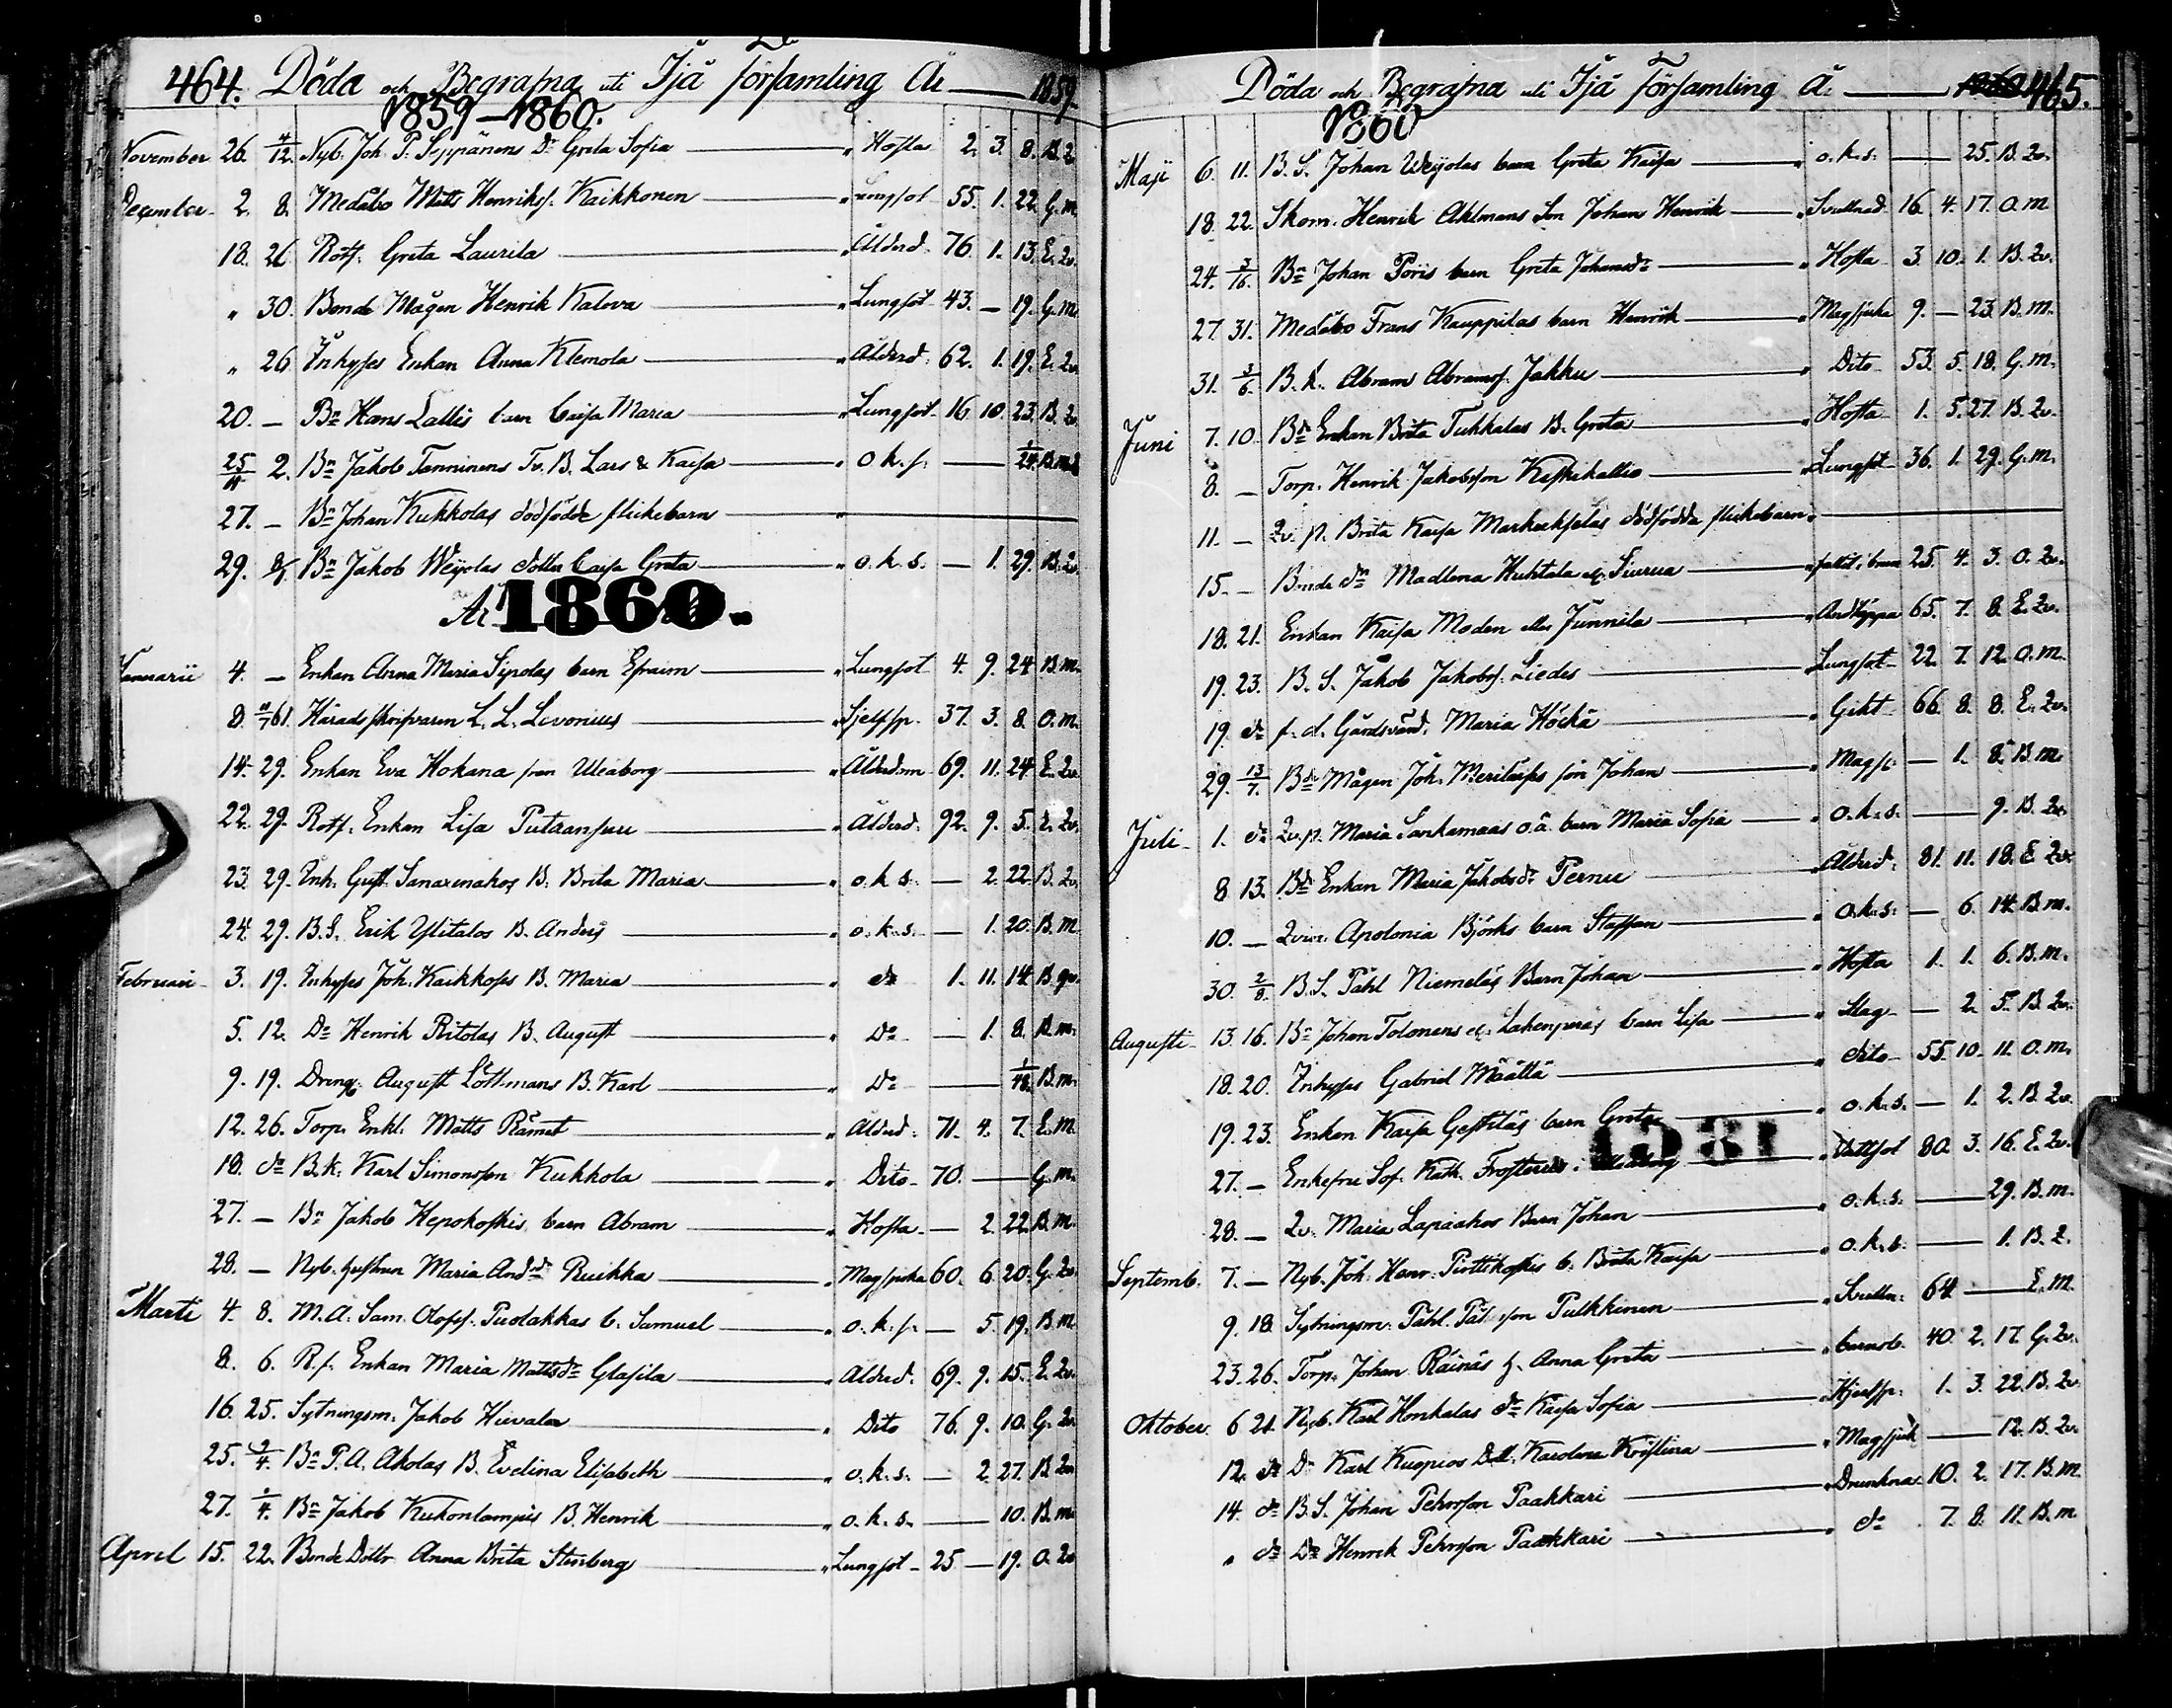 464. Döda och Begrafna uti Ijå församling År 1859.
1859–1860.
November 26. 4/12. Nyb. Joh. P. Seppänens Dr Greta Sofia " Hosta 2. 3. 8. B. 2.
December 2. 8. Medåbo Matts Henrikss. Kaikkonen " Lungsot 55. 1. 22. G. m.
18. 26. Rotf. Greta Laurila " Ålderd. 76. 1. 13. E. Qv.
" 30. Bonde Mågen Henrik Kalova " Lungsot 43. — 19. G. m.
" 26. Inhyses Enkan Anna Klemola " Ålderd. 62. 1. 19. E. Qv.
20. — Bn Hans Lallis barn Caisa Maria " Lungsot 16. 10. 23. B. Qv.
25/11 2. Bn Jakob Tanninens Tv. B. Lars & Kaisa " o. k. s. — 1/24.
27. — Bn Johan Kukkolas dödfödde flickebarn "
29. Bn Jakob Weijolas dotter Caisa Greta " o. k. s. — 1. 29. B. Qv.
År 1860.
Januarii 4. — Enkan Anna Maria Sipolas barn Efraim " Lungsot 4. 9. 24. B. m.
8. Häradsskrifvaren L. L. Levonius " Sjelfsp. 37. 3. 8. O. m.
14. 29. Enkan Eva Hokana från Uleåborg " Ålderdom 69. 11. 24. E. Qv.
22. 29. Rotf. Enkan Lisa Putaansuu " Ålderd. 92. 9. 5. E. Qv.
23. 29. Inh. Gust. Sanarenahos B. Brita Maria " o. k. s. — 2. 22. B. Qv.
24. 29. B. S. Erik Ylitalos B. Anders " o. k. s. — 1. 20. B. M.
Februari 3. 19. Inhyses Joh. Kaikkoses B. Maria " do 1. 11. 14. B. qv.
5. 12. Do Henrik Ritolas B. August " Do — 1. 8. B. m.
9. 19. Dreng. August Löttmans B. Karl " Do — 1/48. B. m.
12. 26. Torp. Enkl. Matts Rämet " Ålderd. 71. 4. 7. E. M.
18. do B. k. Karl Simonsson Kukkola " Dito 70. — G. m.
27. — Bn Jakob Hepokoskis barn Abram " Hosta — 2. 22. B. m.
28. — Nyb. hustrun Maria Andsdr Ruikka " Magsjuka 60. 6. 20. G. Qv.
Marti 4. 8. M. A. Sam. Olofss. Puolakkas b. Samuel " o. k. s. — 5. 19. B. m.
8. 6. R. f. Enkan Maria Mattsdr Glasila " Ålderd. 69. 9. 15. E. Qv.
16. 25. Sytningsm. Jakob Hievala " Dito 76. 9. 10. G.
25. 2/4. Bn P. A. Akolas B. Evelina Elisabeth " o. k. s. — 2. 27. B. Qv.
27. Bn Jakob Kukonlampis B. Henrik " o. k. s. — 10. B. m.
April 15. 22. Bonde Dottr Anna Brita Stenberg " Lungsot 25. — 19. O. Qv.
Döda och Begrafna uti Ijå Församling År 1860 465.
1860
Maji 6. 11. B. S. Johan Weijolas barn Greta Kaisa " o. k. s. — 25. B. Qv.
18. 22. Skom. Henrik Ahlmans Son Johan Henrik " Svullnad 16. 4. 17. O. m.
24. Bn Johan Pöris barn Greta Johansdr " Hosta 3. 10. 1. B. Qv.
27. 31. Medåbo Frans Kauppilas barn Henrik " Magsjuka 9. — 23. B. m.
31. 3/6. B. k. Abram Abramss. Jakku " Dito 53. 5. 18. G. m.
Juni 7. 10. Bde Enkan Brita Tukkalas B. Greta " Hosta 1. 5. 27. B. Qv.
8. — Torp. Henrik Jakobsson Keskikallio " Lungsot 36. 1. 29. G. m.
11. — Qv. p. Brita Kaisa Markukselas dödfödda flickebarn "
15. — Bonde dr Madlena Huhtala el. Siurua " 25. 4. 3. O. Qv.
18. 21. Enkan Kaisa Moden eller Junnila " Andtäppa 65. 7. 8. E. Qv.
19. 23. B. S. Jakob Jakobss. Liedes " Lungsot 22. 7. 12. O. m.
19. do f. d. Gårdsvärd. Maria Höckä " Gikt 66. 8. 8. E. Qv.
29. 13/7. Bde Mågen Joh. Meriläises son Johan " Magsj. — 1. 8. B. m.
Juli 1. do Qv. p. Maria Sankamaas o. ä. barn Maria Sofia " o. k. s. — 9. B. Qv.
8. 13. Bde Enkan Maria Jakobsdr Pernu " Ålderd. 81. 11. 18. E. Qv.
10. — Qvin. Apolonia Björks barn Staffan " o. k. s. — 6. 14. B. m.
30. 2/8. B. S. Påhl Niemeläs Barn Johan " Hosta 1. 1. 6. B. m.
Augusti 13. 16. Bn Johan Tolonens el. Lahenperäs barn Lisa " Slag — 2. 5. B. Qv.
18. 20. Inhyses Gabriel Määttä " dito 55. 10. 11. O. m.
19. 23. Enkan Kaisa Gestiläs barn Greta " o. k. s. — 1. 2. B. Qv.
27. — Enkefru Sof. Kath. Frosterus i Uleåborg " Vattsot 80. 3. 16. E. Qv.
28. — Qv. Maria Lapinahos Barn Johan " o. k. s. — 29. B. m.
Septemb. 7. — Nyb. Joh. Henr. Pirttikoskis b. Brita Kaisa " o. k. s. — 1. B. Q.
9. 18. Sytningsm. Påhl. Påls son Pulkkinen " Svulln. 64. — E. M.
23. 26. Torp. Johan Räinäs h. Anna Greta " barnsb. 40. 2. 17. G. Qv.
Oktober 6. 21. Nyb. Karl Honkalas dr Kaisa Sofia " 1. 3. 22. B. Qv.
12. do Do Karl Kuopios Dott. Karolina Kristina " Magsjuk — 12. B. Qv.
14. do B. S. Johan Pehrsson Paakkari " Drunknat 10. 2. 17. B. M.
" do Do Henrik Pehrsson Paakkari " do 7. 8. 11. B. m.